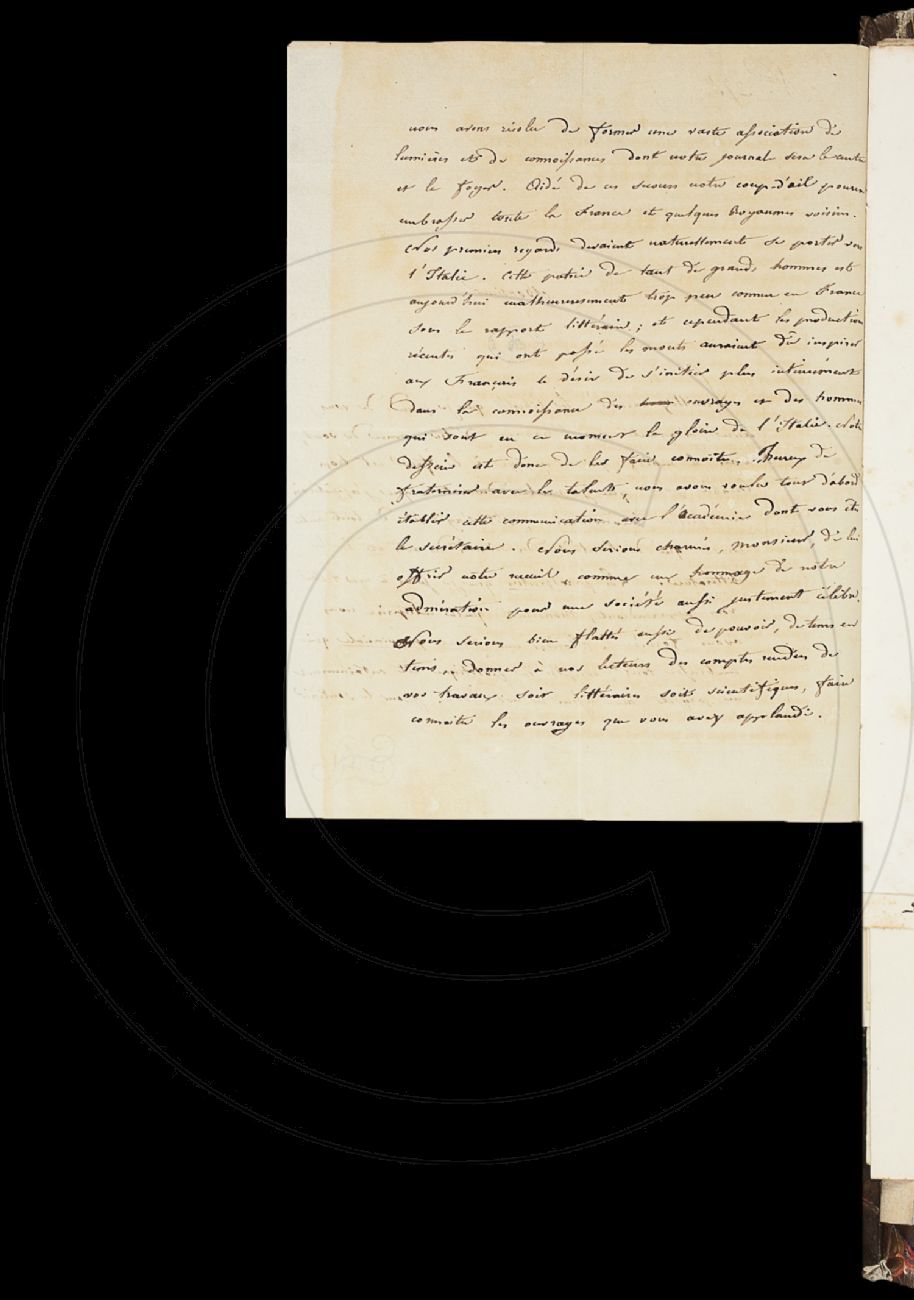 nous avons résolu de former une vaste association de
lumières et de connoissances dont notre journal sera le centre
et le foyer. Aidé de ces secours notre coup-d'œil pourra
embrasser toute la France et quelques Royaumes voisins.
Nos premiers regards devaient naturellement se porter vers
l'Italie. Cette patrie de tant de grands hommes est
aujourd'hui malheureusement trop peu connue en France
sous le rapport littéraire ; et cependant les productions
récentes qui ont passé les monts auraient dû inspirer
aux Français le désir de s'initier plus intimément
dans la connoissance des ouvrages et des hommes
qui sont en ce moment la gloire de l'Italie. Notre
dessein est donc de les faire connoitre. Heureux de
fraterniser avec les talents, nous avons voulu tout d'abord
établir cette communication avec l'académie dont vous êtes
le secrétaire. Nous serions charmés, monsieur, de lui
offrir notre recueil comme un hommage de notre
admiration pour une société aussi justement célèbre.
Nous serions bien flattés aussi de pouvoir, de tems en
tems, donner à nos lecteurs des comptes rendus de
vos travaux soit littéraires soit scientifiques, faire
connoitre les ouvrages que vous avez applaudi.